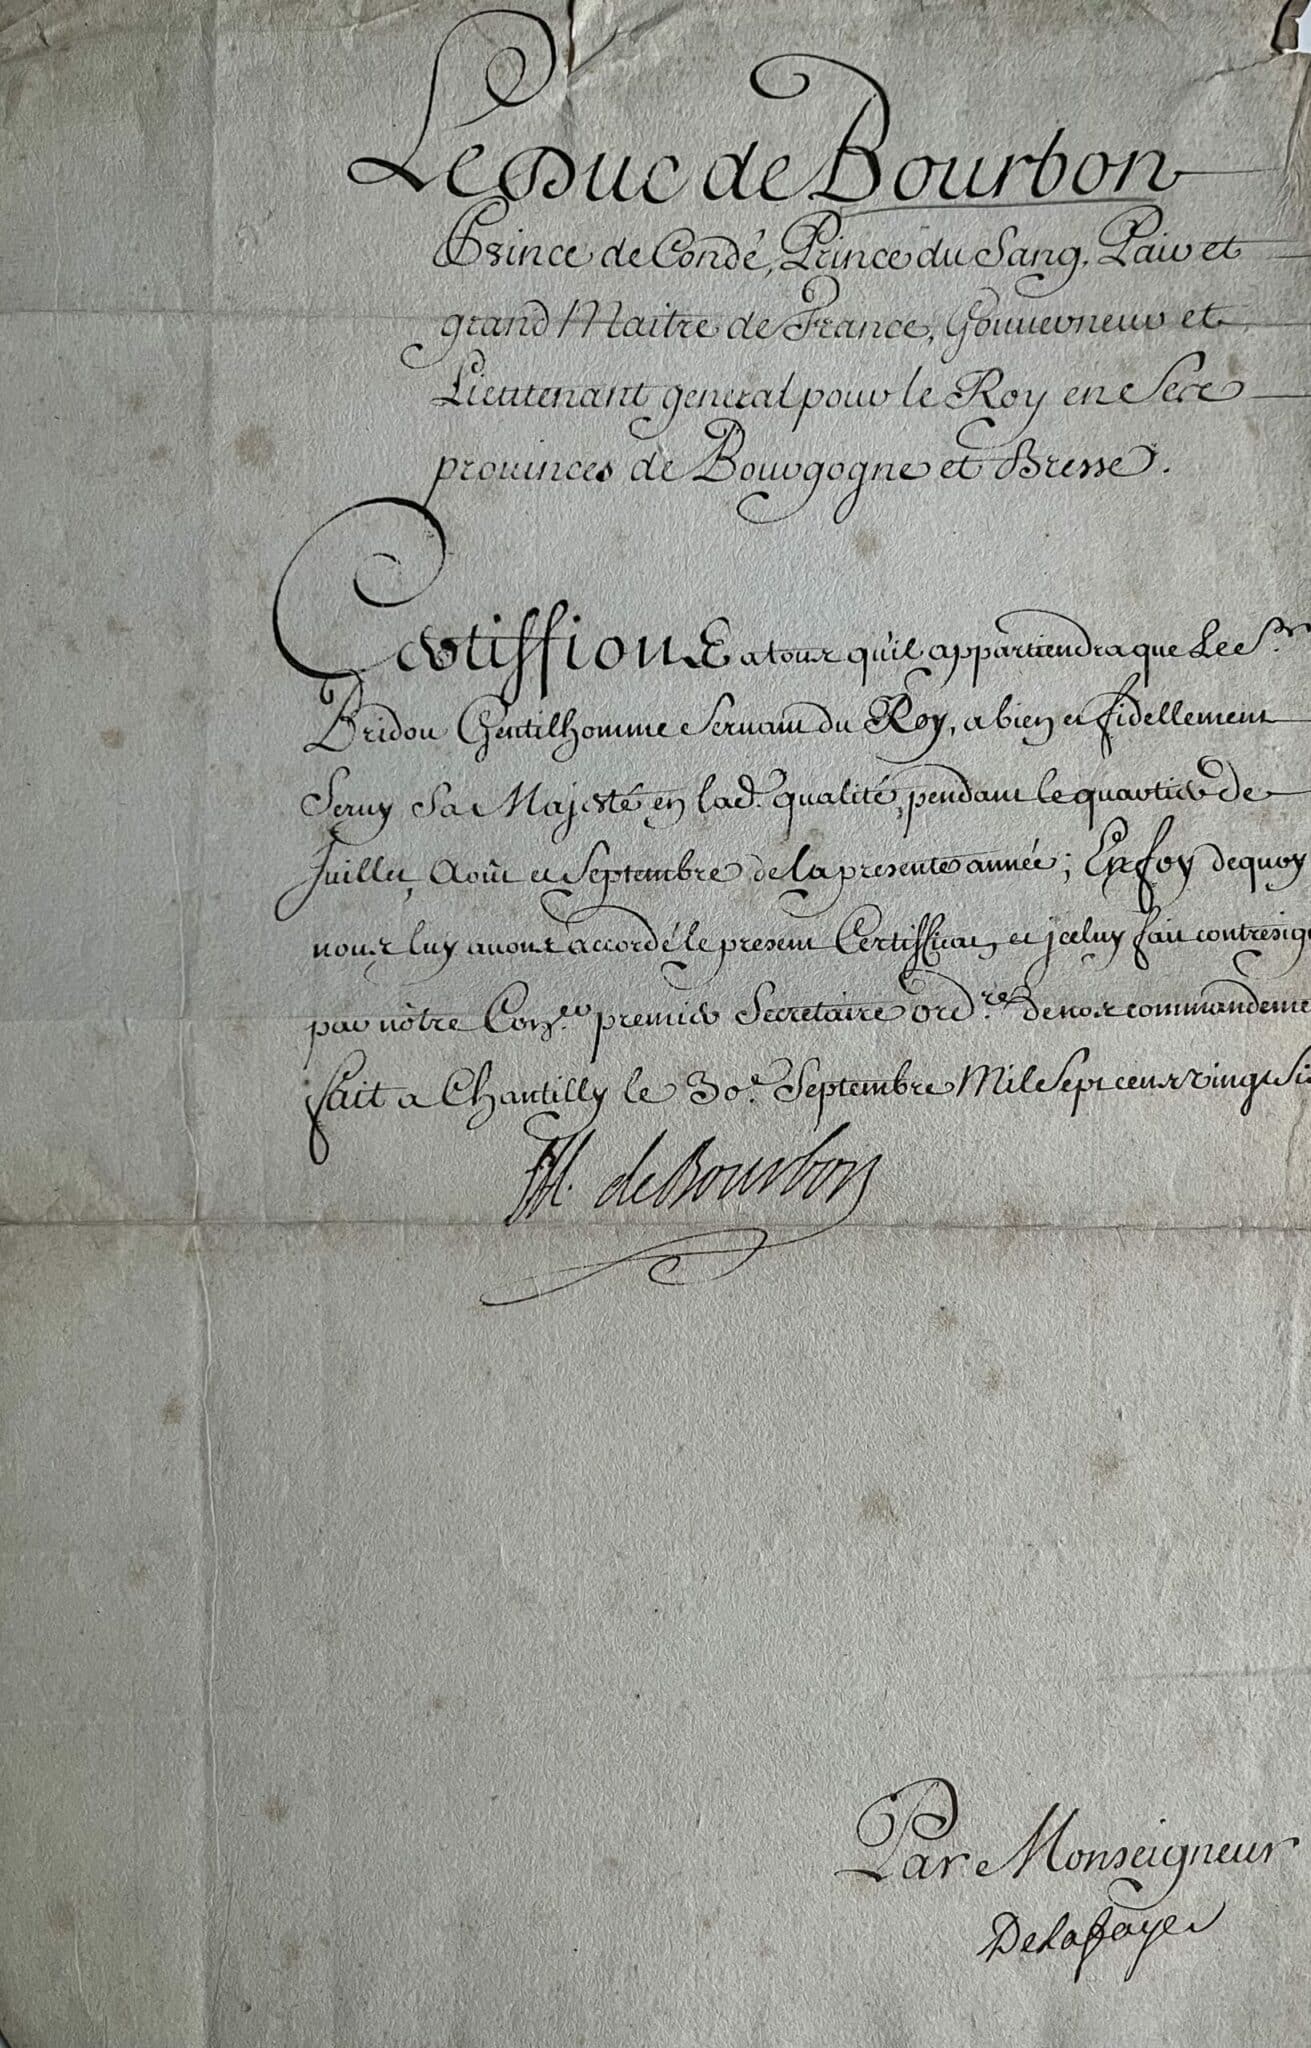 Le Duc de Bourbon
Prince de Condé, Prince du Sang, Pair et
grand Maitre de France, Gouuerneur et
Lieutenant general pour le Roy en Ses
prouinces de Bourgogne et Bresse.
Certiffions a tous qu'il appartiendra que Le Sr.
Bridou Gentilhomme Seruant du Roy, a bien et fidellement
Seruy Sa Majesté en lad. qualité, pendant le quartier de
Juillet, Aoust et Septembre de la presente année; En foy dequoy
nous luy auons accordé le present Certifficat, et jceluy fait contresig
par nôtre Coner. premier Secretaire ordre. de nos commandeme
fait a Chantilly le 30e. Septembre Mil Sept cens vingt Si
de Bourbon
Par Monseigneur
Delafaye